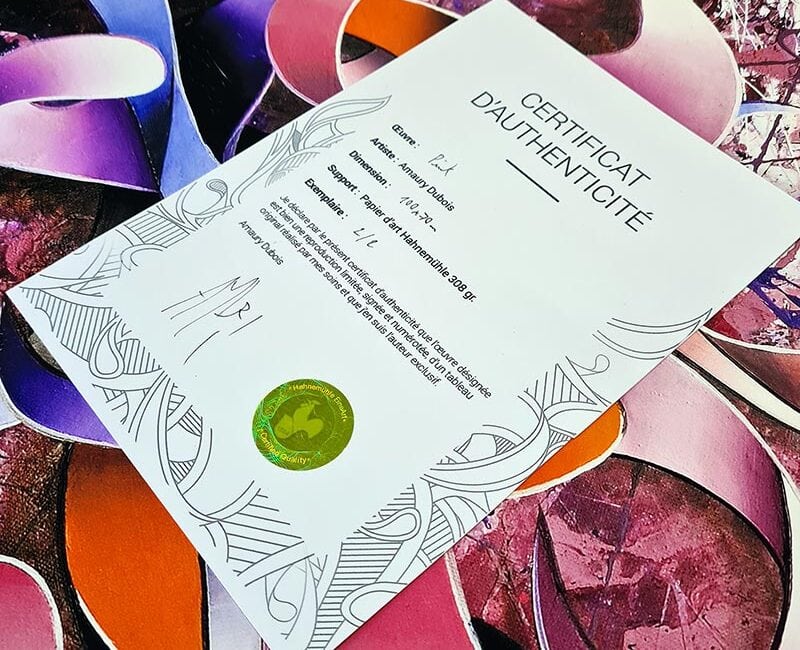 CERTIFICAT
D'AUTHENTICITÉ
Œuvre :
Artiste : Amaury Dubois
Dimension : 100x70
Support : Papier d'art Hahnemühle 308 gr.
Exemplaire : 2/2
Je déclare par le présent certificat d'authenticité que l'œuvre désignée
est bien une reproduction limitée, signée et numérotée, d'un tableau
original réalisé par mes soins et que j'en suis l'auteur exclusif.
Amaury Dubois
*Hahnemühle FineArt*
*Certified Quality*